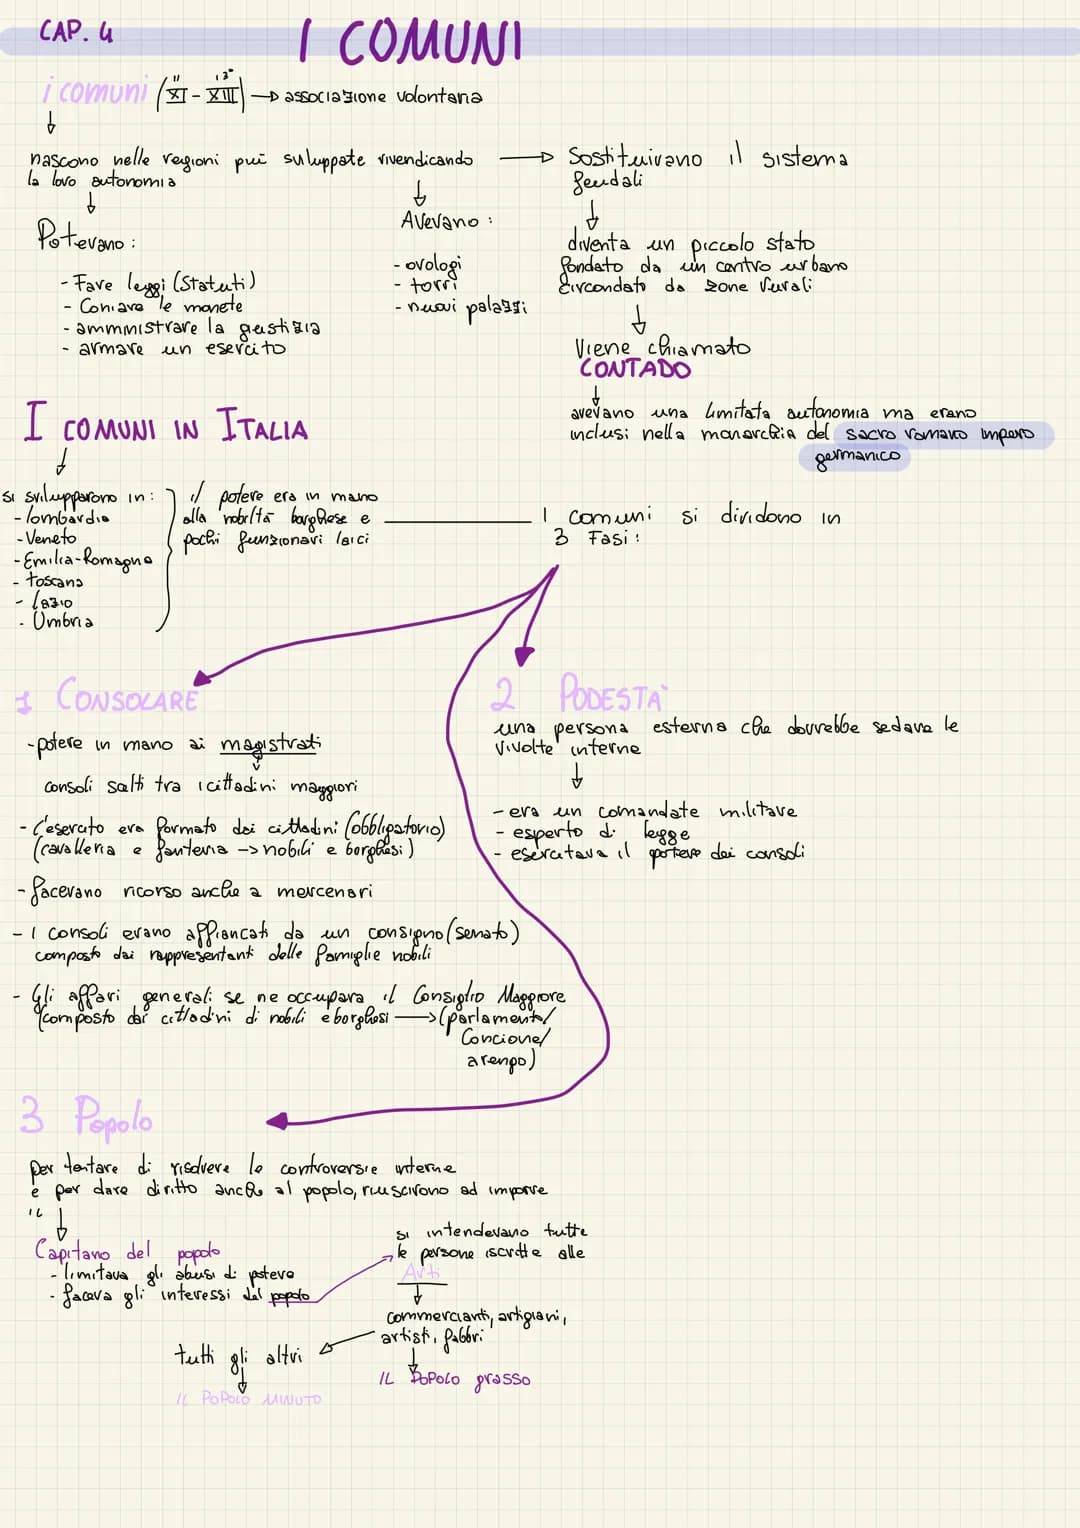 CAP. 4
I COMUNI
i comuni (XI - XIII) → associazione volontaria
11 13°
nascono nelle regioni piu sviluppate rivendicando
la loro autonomia
→ Sostituivano il sistema
feudali
Potevano :
- Fare leggi (Statuti)
- Coniare le monete
- ammministrare la giustizia
- armare un esercito
Avevano :
- orologi
- torri
- nuovi palazzi
diventa un piccolo stato
fondato da un centro urbano
circondato da zone rurali
Viene chiamato
CONTADO
avevano una limitata autonomia ma erano
inclusi nella monarchia del sacro romano impero
germanico
I COMUNI IN ITALIA
si svilupparono in :
- lombardia
- Veneto
- Emilia-Romagna
- toscana
- lazio
- Umbria
il potere era in mano
alla nobiltà borghese e
pochi funzionari laici
I comuni si dividono in
3 Fasi :
1 CONSOLARE
- potere in mano ai magistrati
consoli scelti tra i cittadini maggiori
- l'esercito era formato dai cittadini (obbligatorio)
(cavalleria e fanteria -> nobili e borghesi)
- facevano ricorso anche a mercenari
- I consoli erano affiancati da un consigno (senato)
composto dai rappresentanti delle famiglie nobili
- Gli affari generali se ne occupava il Consiglio Maggiore
(composto dai cittadini di nobili e borghesi → (parlamento/
Concione/
arengo)
2 PODESTÀ
una persona esterna che dovrebbe sedare le
rivolte interne
- era un comandate militare
- esperto di legge
- esercitava il potere dei consoli
3 Popolo
per tentare di risolvere le controversie interne
e per dare diritto anche al popolo, riuscirono ad imporre
IL
Capitano del popolo
- limitava gli abusi di potere
- faceva gli interessi del popolo
si intendevano tutte
le persone iscritte alle
Arti
commercianti, artigiani,
artisti, fabbri
IL POPOLO grasso
tutti gli altri
IL POPOLO MINUTO